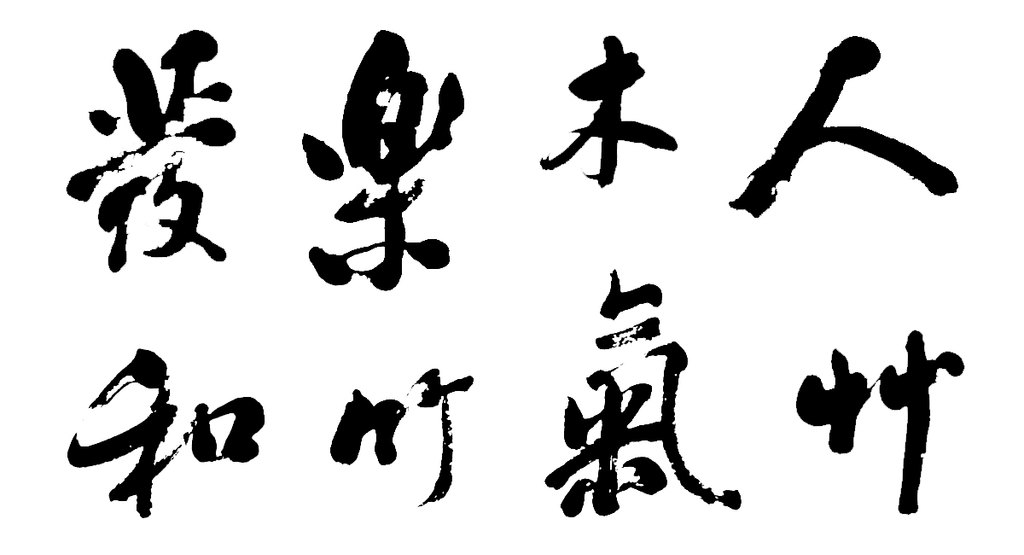 人艸
木氣
樂竹
發和